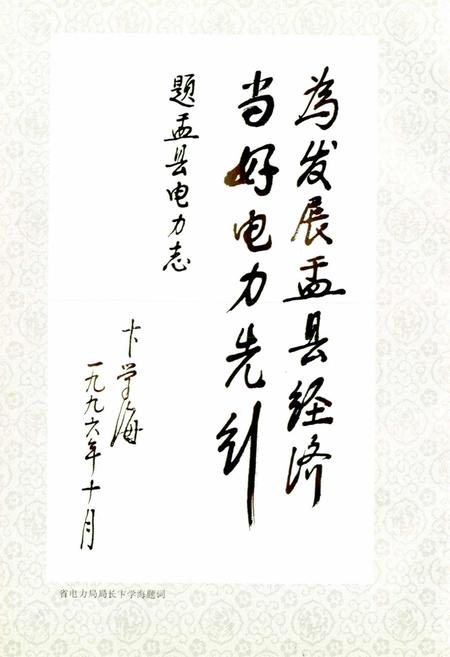 為发展盂县经济
当好电力先行
题盂县电力志
卞学海
一九九六年十月
省电力局局长卞学海题词